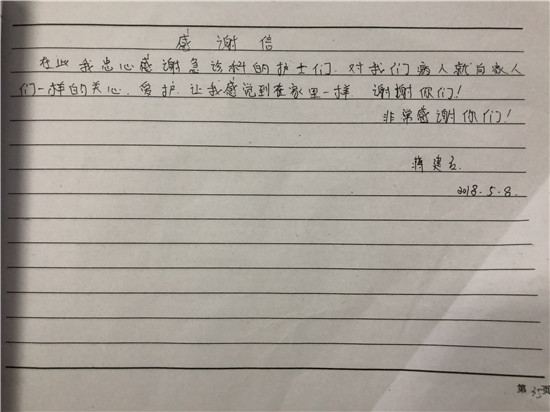 感谢信
在此我忠心感谢急诊科的护士们.对我们病人就向家人
们一样的关心、爱护.让我感觉到在家里一样 谢谢你们!
非常感谢你们!
蒋建
2018.5.8.
第35页